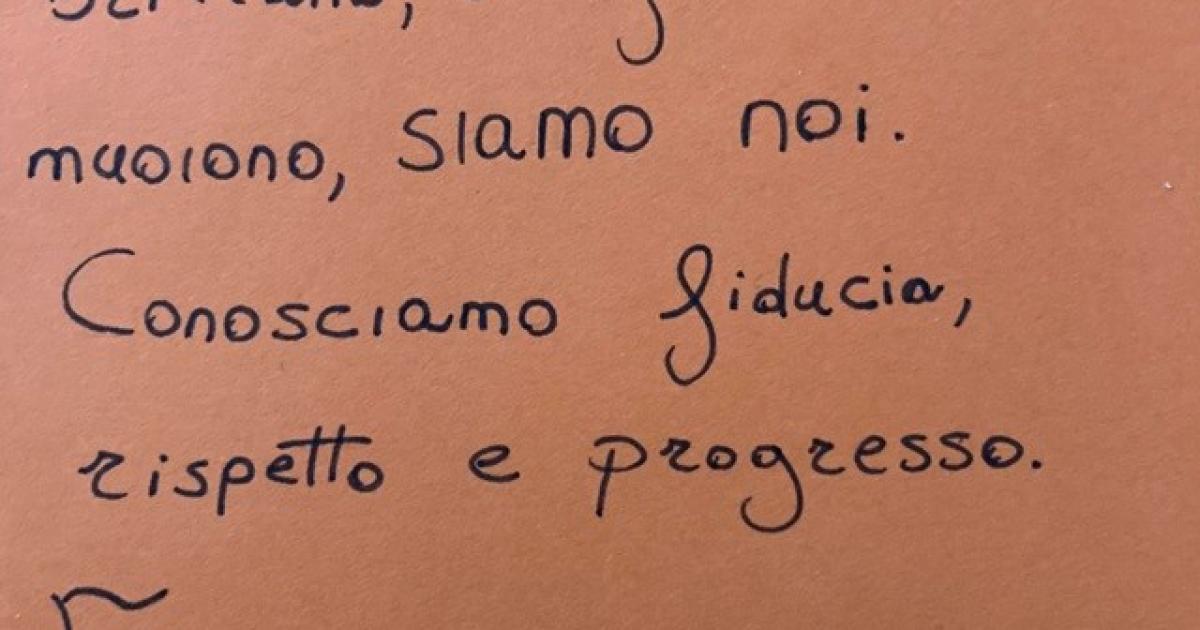 muoiono, siamo noi.
Conosciamo fiducia,
rispetto e progresso.